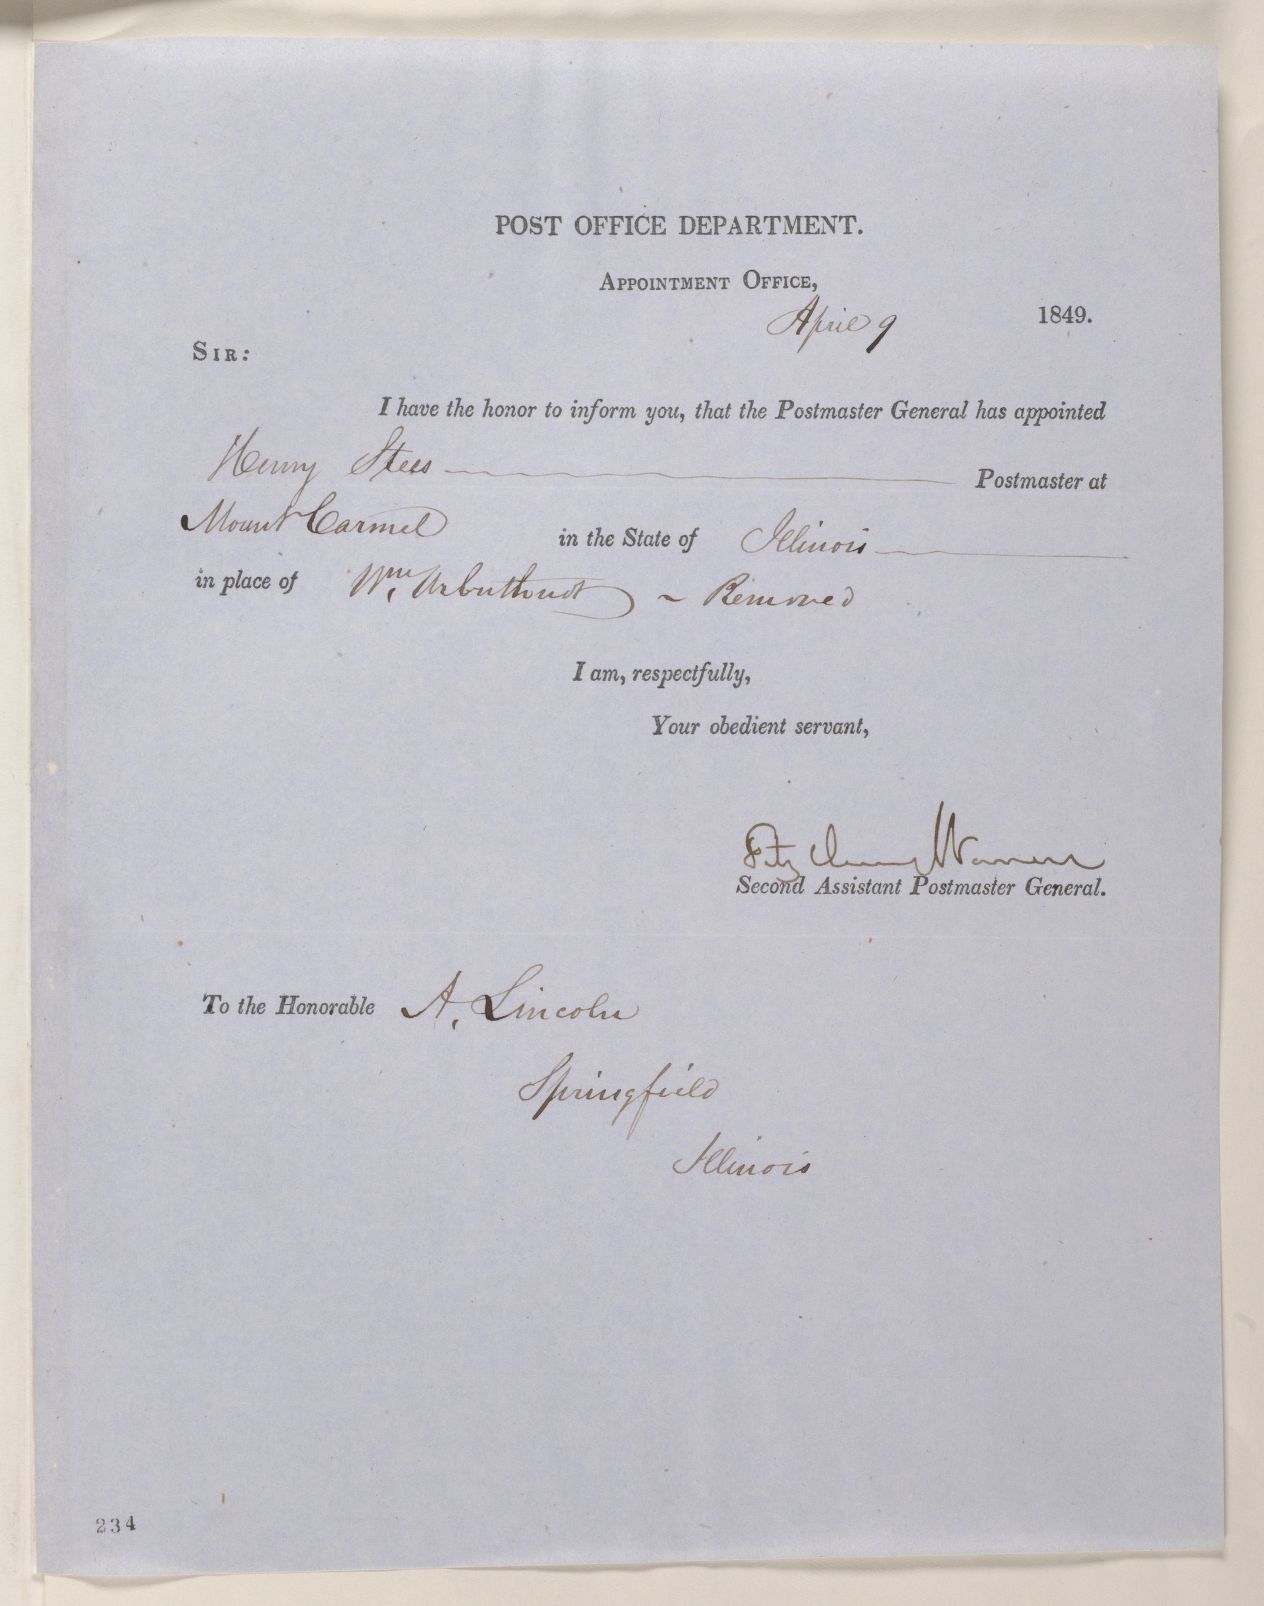 POST OFFICE DEPARTMENT.
APPOINTMENT OFFICE,
April 9 1849.
SIR:
I have the honor to inform you, that the Postmaster General has appointed
Henry Stees Postmaster at
Mount Carmel in the State of Illinois
in place of Wm. Arbuthnot ~ Removed
I am, respectfully,
Your obedient servant,
Fitz Henry Warren
Second Assistant Postmaster General.
To the Honorable A. Lincoln
Springfield
Illinois
234